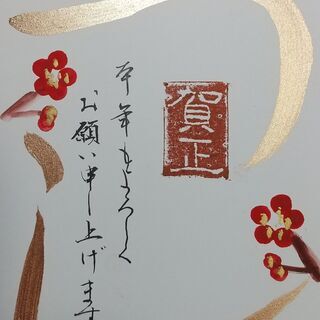 賀正
本年もよろしく
お願い申し上げます